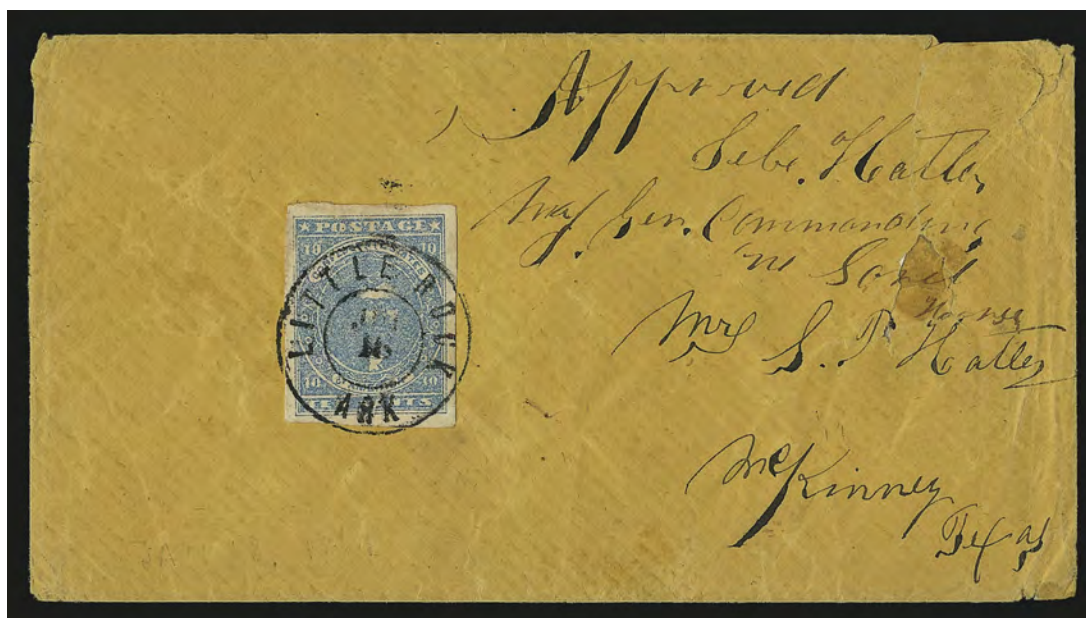 Approved
Sebe. Hatler
Maj Gen. Commanding
Mrs S. P. Hatler
McKinney
Texas
★ POSTAGE ★
10 10
10 10
TEN CENTS
LITTLE ROCK
ARK